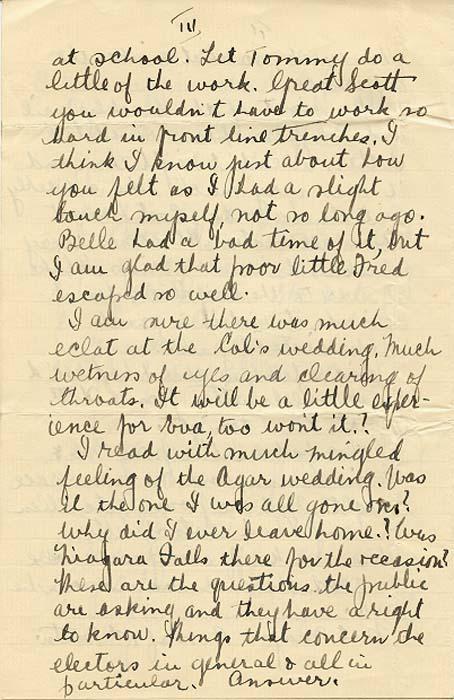 III
at school. Let Tommy do a
little of the work. Great Scott
you wouldn't have to work so
hard in front line trenches. I
think I know just about how
you felt as I had a slight
touch myself, not so long ago.
Belle had a bad time of it, but
I am glad that poor little Fred
escaped so well.
I am sure there was much
eclat at the Col's wedding. Much
wetness of eyes and clearing of
throats. It will be a little exper-
ience for Eva, too won't it.?
I read with much mingled
feeling of the Agar wedding. Was
it the one I was all gone on?
Why did I ever leave home.? Was
Niagara Falls there for the occasion?
These are the questions the public
are asking and they have a right
to know. Things that concern the
electors in general & all in
particular. Answer.